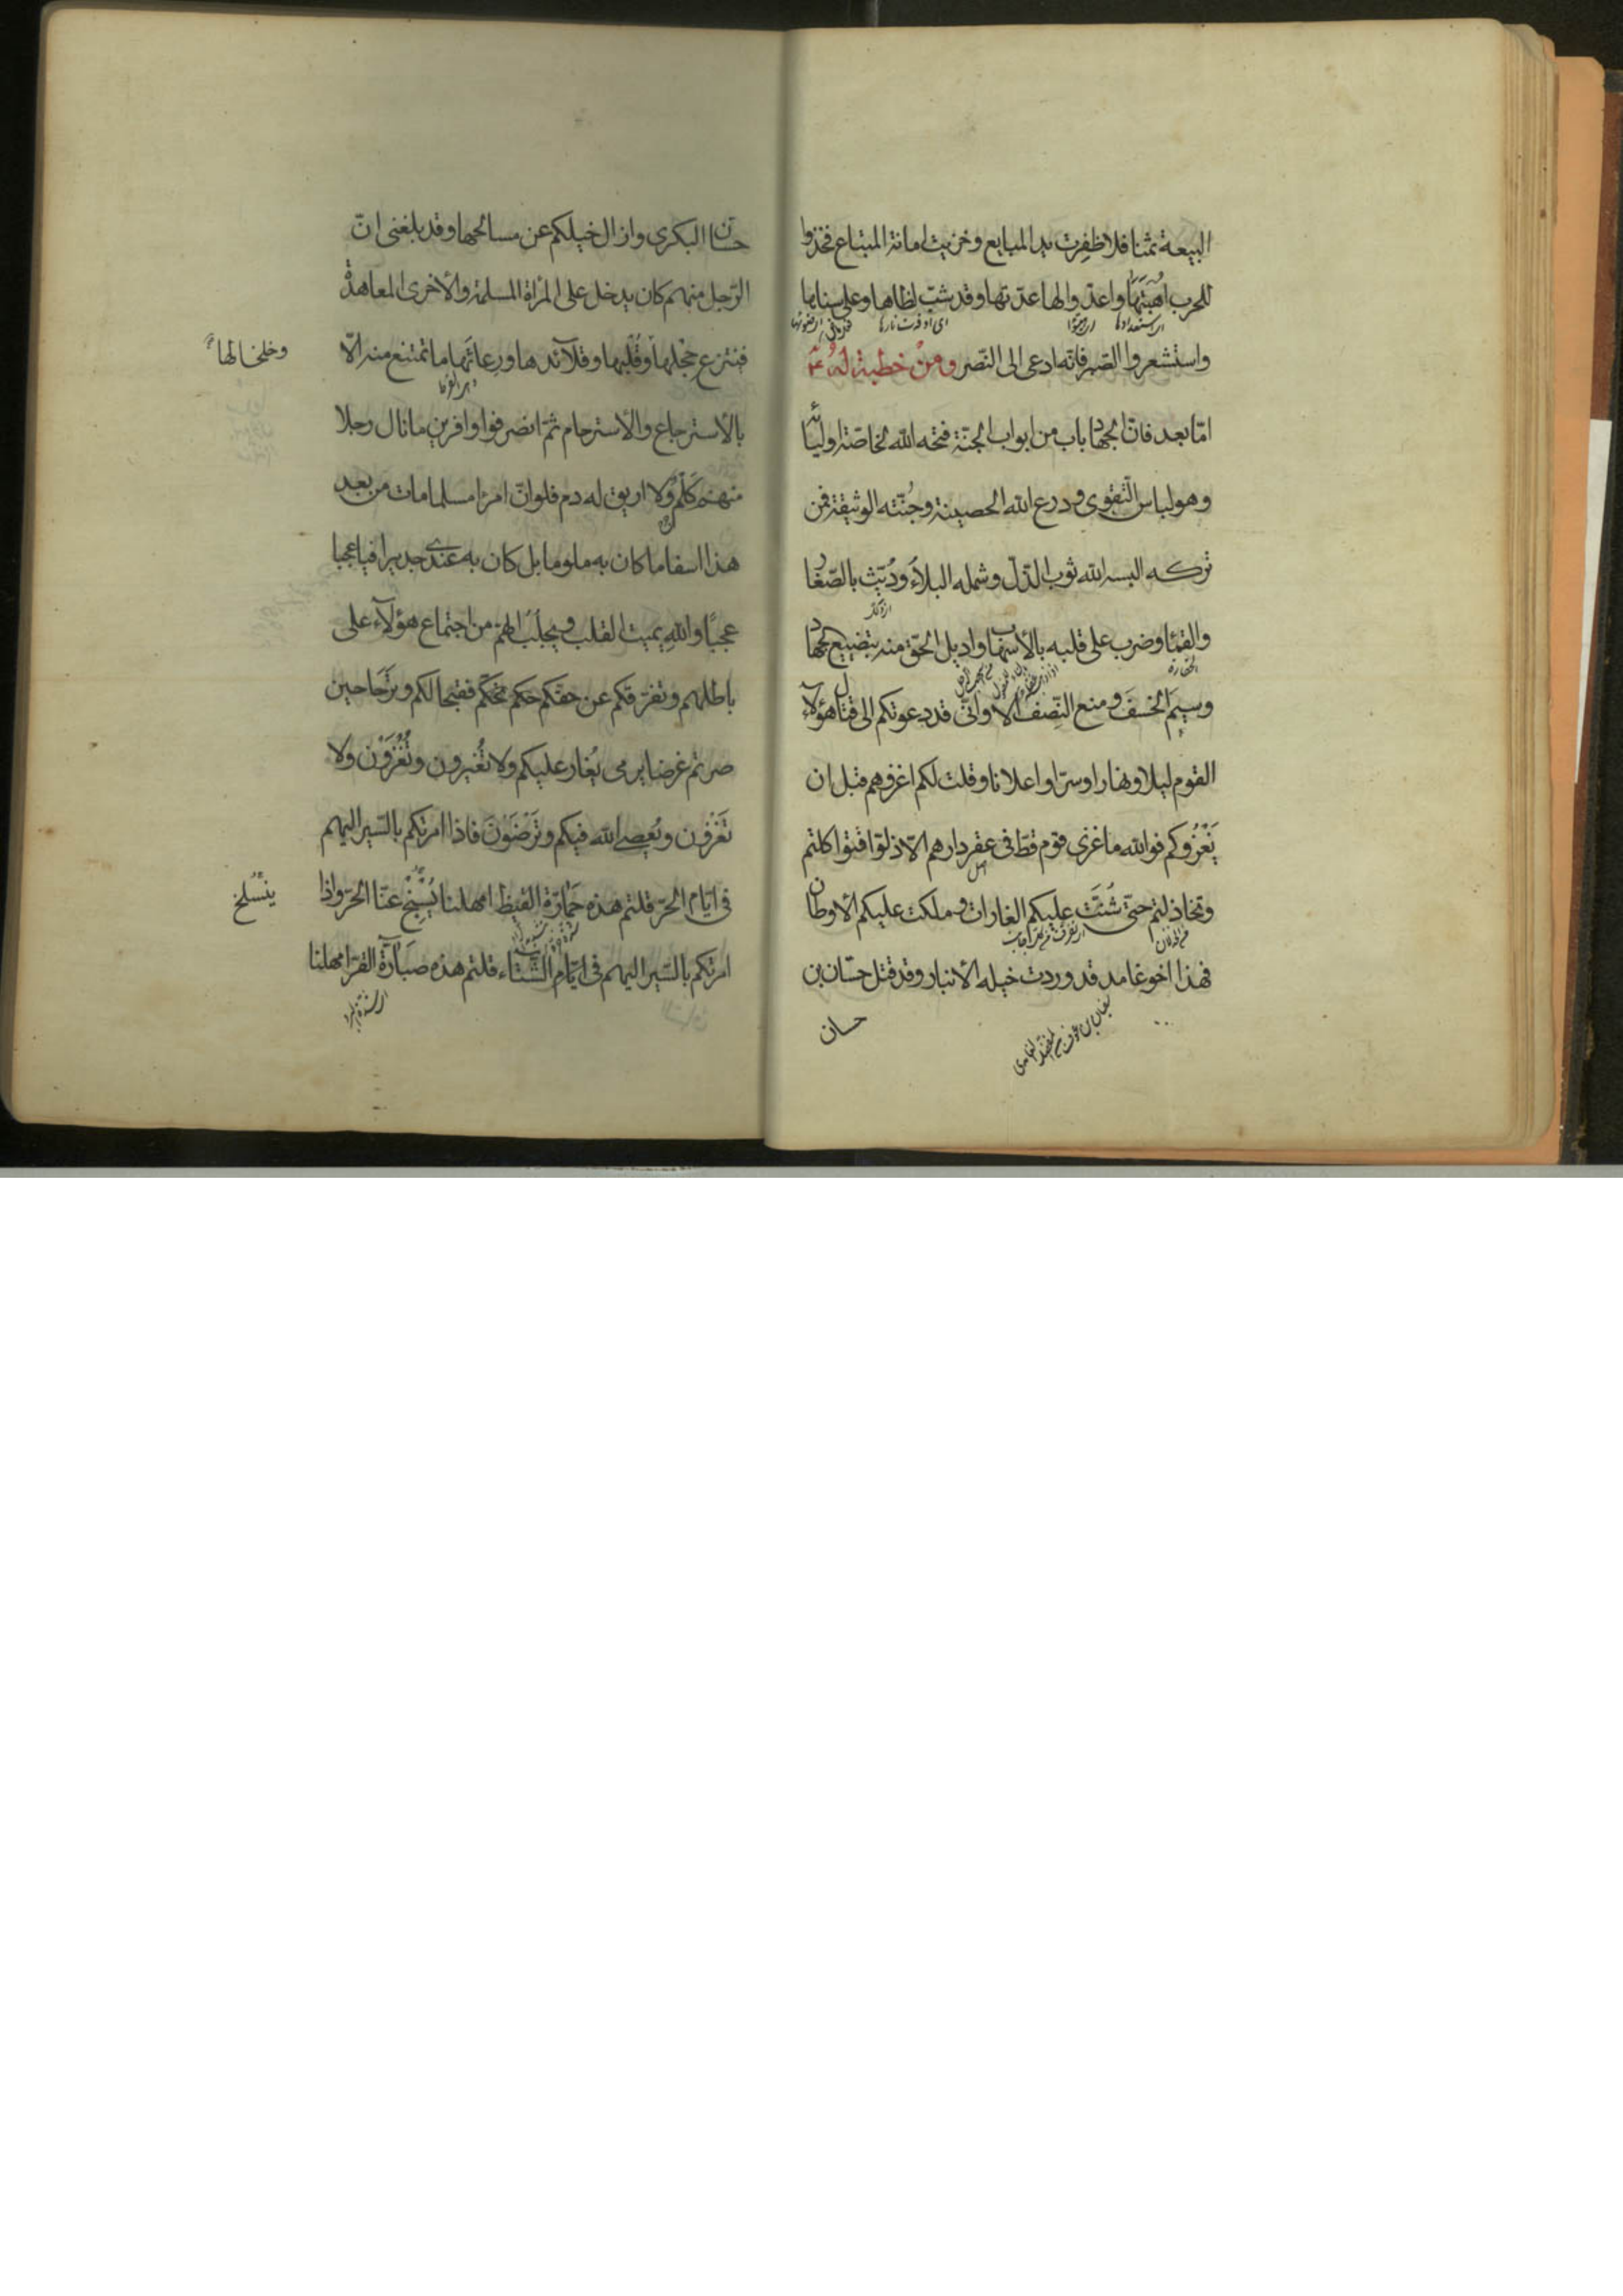 البيعة ثمنا فلا ظفِرت يد المبايع وخزيت امانة المبتاع فخذوا
للحرب اُهْبَتَهَا واعدّوا لها عدّتها وقد شبّ لظاها وعلى سناها
واستشعروا الصّبر فانّه ادعى الى النّصر ومنْ خطبة لهُ ع
امّا بعد فانّ الجهاد باب من ابواب الجنّة فتحه الله لخاصّة اوليائه
وهو لباس التّقوى ودرع الله الحصينة وجُنّته الوثيقة فمن
تركه البسه الله ثوب الذّلّ وشمله البلآءُ ودُيّث بالصّغار
والقمآ وضرب على قلبه بالأسهاب واديل الحّق منه بتضييع الجهاد
وسِيمَ الخسفَ ومنع النّصِف الا وانّى قد دعوتكم الى قتال هؤلآء
القوم ليلا ونهارا وسرّا واعلانا وقلت لكم اغزوهم قبل ان
يَغْزُوكم فوالله ما غزى قوم قطّ فى عقر دارهم الّا ذلّوا فتواكلتم
وتخاذلتم حتّى شُنَّت عليكم الغارات وملكت عليكم الأوطان
فهذا اخو غامد قد وردت خيله الأنبار وقد قتل حسّان بن
حسان
حسّان البكرى وازال خيلكم عن مسالحها وقد بلغنى انّ
الرّجل منهم كان يدخل على المرأة المسلمة والأخرى المعاهدة
فنتزع حجْلها وقُلْبها وقلآئدها ورِعاثَها ما تمتنع منه الّا
وخلخالها
بالأسترجاع والأسترحام ثمّ انصرفوا وافرين ما نال رجلا
منهم كَلْمٌ ولا اريق له دم فلو انّ امرءا مسلما مات من بعد
هذا اسفا ما كان به ملوما بل كان به عندى جديرا فيا عجبا
عجبًا واللهِ يميت القلب ويجلبُ الهمّ من اجتماع هؤلآء على
باطلهم وتفرّقكم عن حقّكم فقبحا لكم وترَحًا حين
صرتم غرضا يرمى يُغار عليكم ولا تُغيرون وتُغْزَوْن ولا
تَغزُون ويُعصى الله فيكم وتَرْضَوْنَ فاذا امرتكم بالسّير اليهم
فى ايّام الحرّ قلتم هذه حَمَارّة القيظ امهلنا يُسَبَّخْ عنّا الحرّ واذا
ينسلخ
امرتكم بالسّير اليهم فى ايّام الشّتاء قلتم هذه صَبَارّة القرّ امهلنا